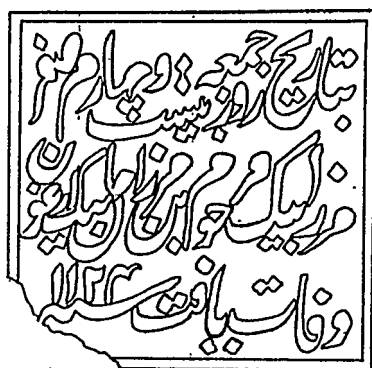 بتاریخ روز جمعه بیست و چهارم صفر
مرزا بیک مرحوم ابن مرزا بیک
وفات یافت سنه ۱۱۲۳